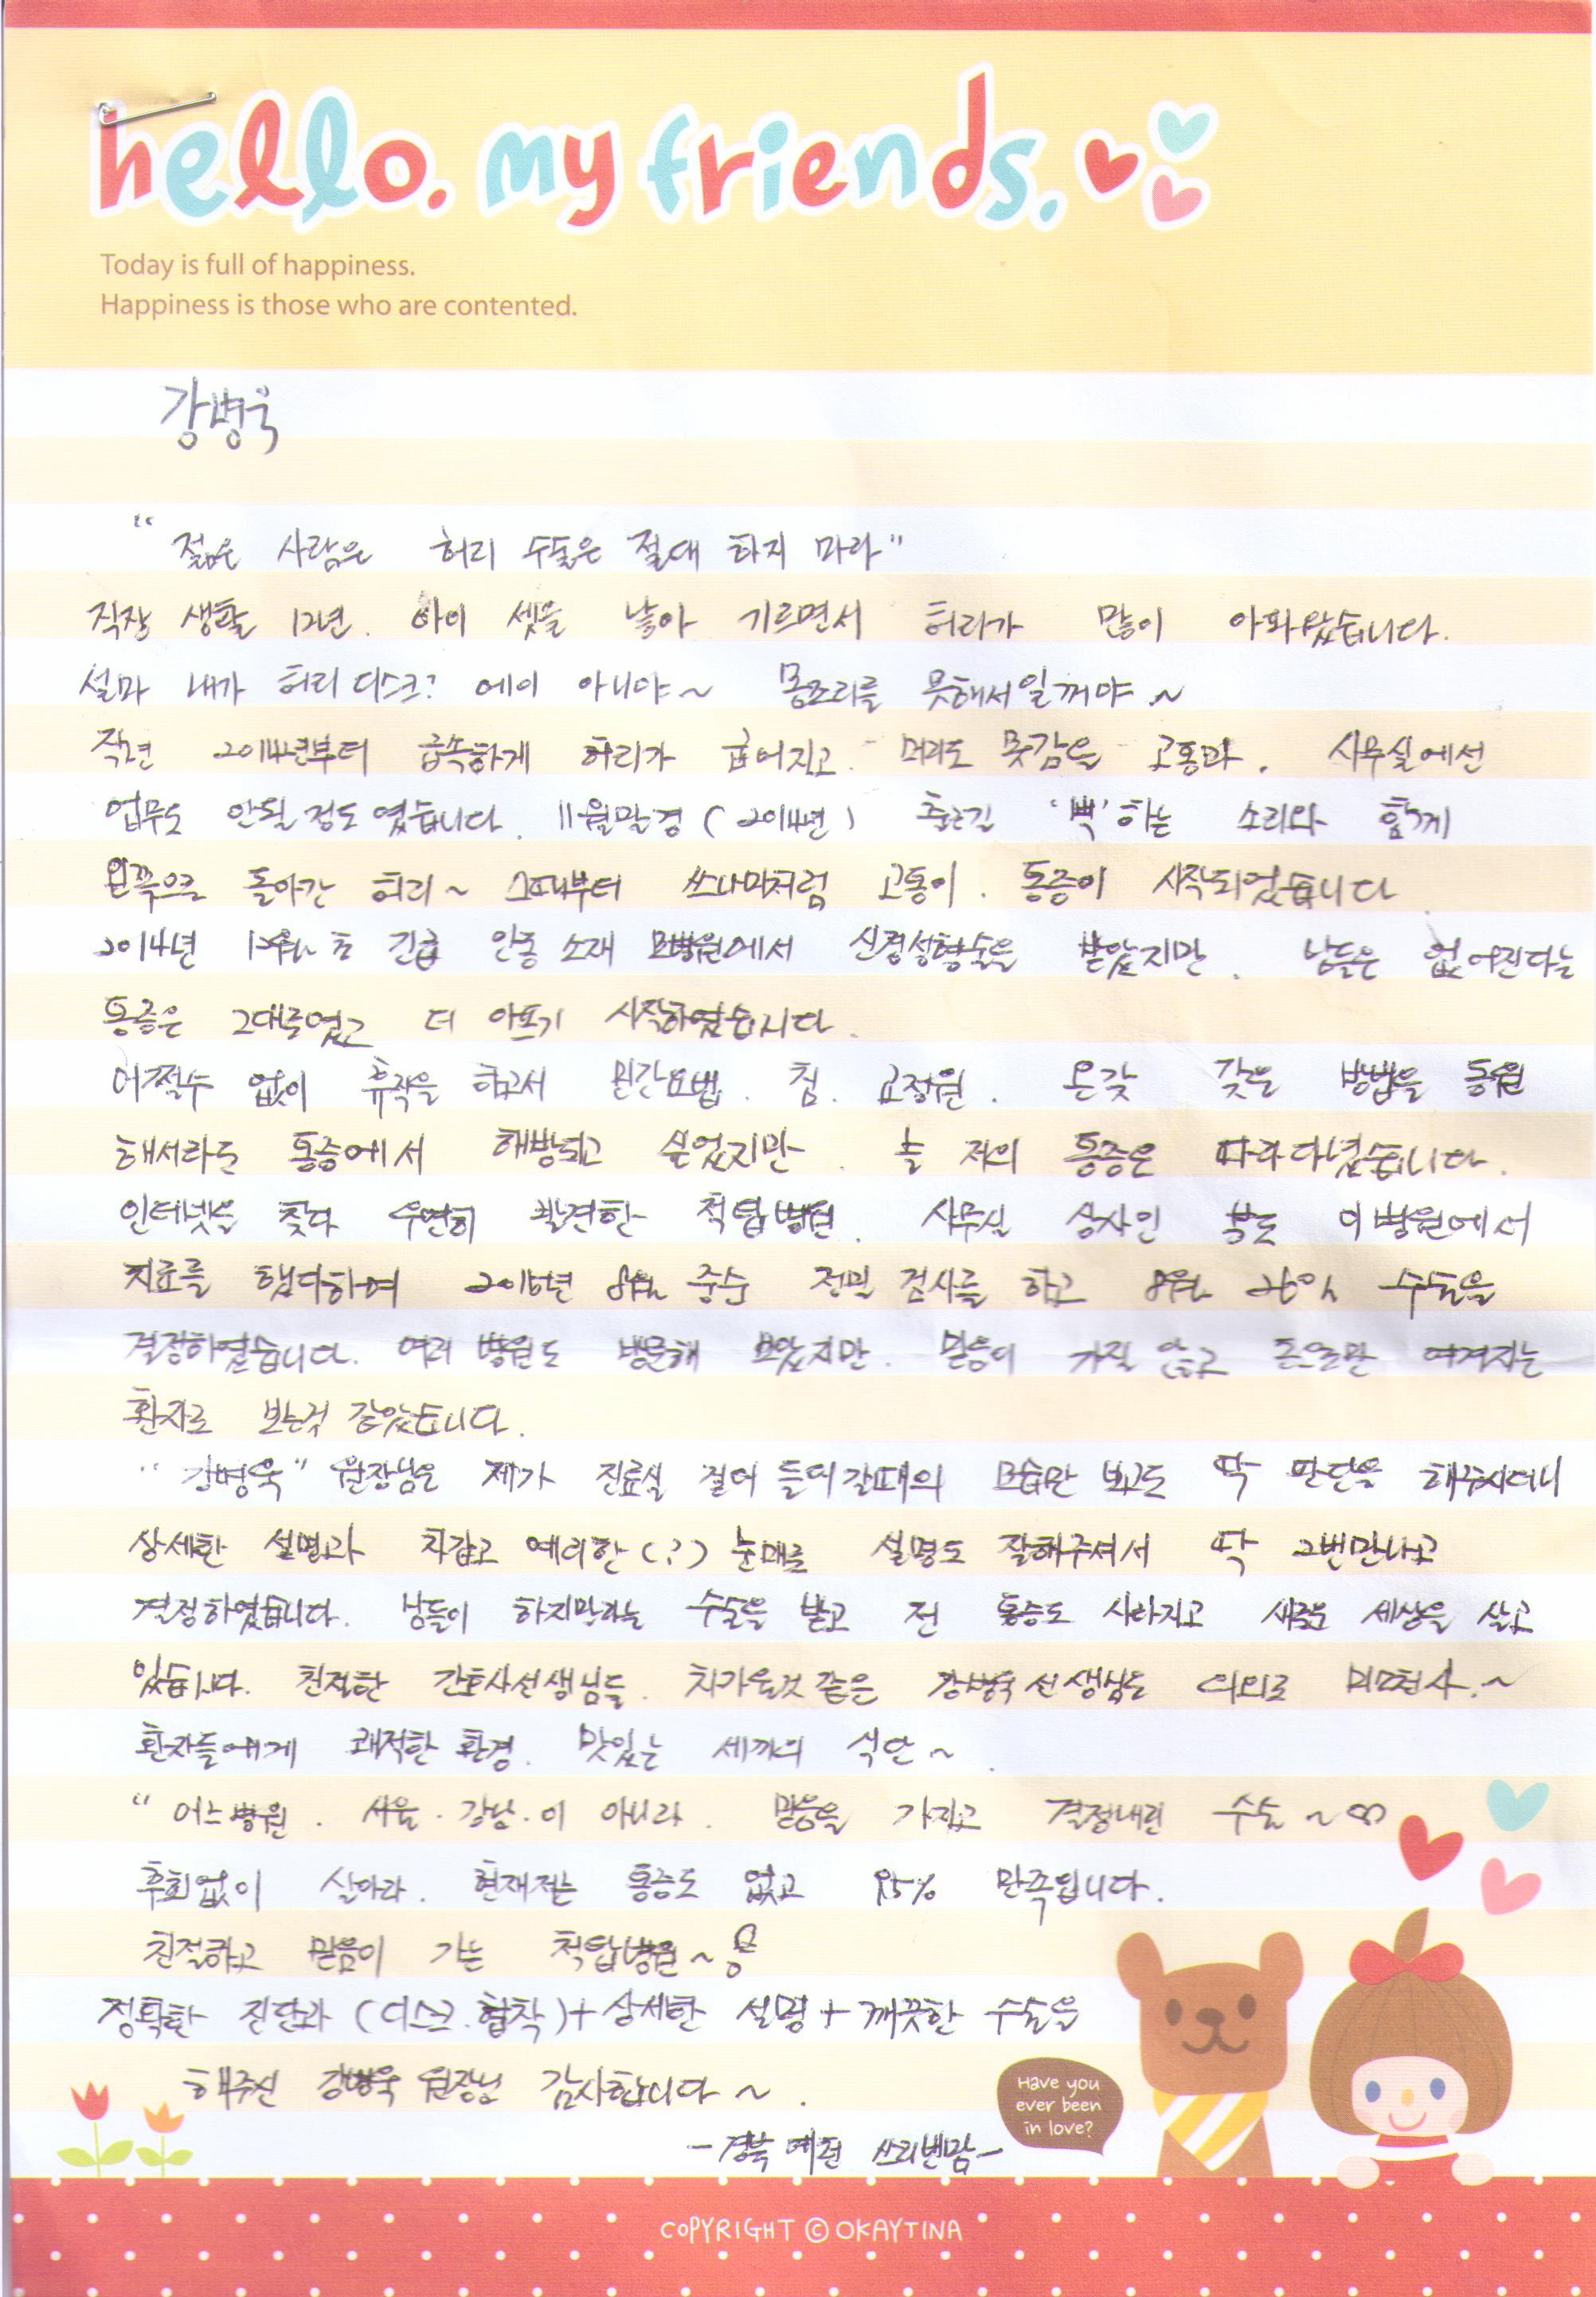 hello. my friends.
Today is full of happiness.
Happiness is those who are contented.
강병욱
"젊은 사람은 허리 수술은 절대 하지 마라"
직장 생활 12년. 아이 셋을 낳아 기르면서 허리가 많이 아파왔습니다.
설마 내가 허리디스크? 에이 아니야~ 몸조리를 못해서일꺼야~
작년 2014년부터 급속하게 허리가 굽어지고. 머리도 못감을 고통과. 사무실에선
업무도 안될정도였습니다. 11월말경(2014년) 출근길 '뻑'하는 소리와 함께
왼쪽으로 돌아간 허리~ 그때부터 쓰나미처럼 고통이. 통증이 시작되었습니다
2014년 12월초 긴급 안동 소재 모병원에서 신경성형술을 받았지만. 남들은 없어진다는
통증은 그대로였고 더 아프기 시작하였습니다.
어쩔수 없이 휴직을 하고서 민간요법. 침. 교정원. 온갖 갖은 방법을 동원
해서라도 통증에서 해방되고 싶었지만. 늘 저의 통증은 따라다녔습니다.
인터넷을 찾다 우연히 발견한 척탑병원. 사무실 상사인 분도 이병원에서
치료를 했다하여 2015년 8월 중순 정밀 검사를 하고 8월 26일 수술을
결정하였습니다. 여러 병원도 방문해 보았지만. 믿음이 가질 않고 돈으로만 여겨지는
환자로 보는것 같았습니다.
"강병욱" 원장님은 제가 진료실 걸어 들어갈때의 모습만 보고도 딱 판단을 해주시더니
상세한 설명과 차갑고 예리한(?) 눈매로 설명도 잘해주셔서 딱 2번만나고
결정하였습니다. 남들이 하지말라는 수술을 받고 전 통증도 사라지고 새로운 세상을 살고
있습니다. 친절한 간호사선생님들. 차가울것같은 강병욱선생님도 의외로 미소천사.~
환자들에게 쾌적한 환경. 맛있는 세끼의 식단~.
"어느병원. 서울.강남.이 아니라. 믿음을 가지고 결정내린 수술~
후회없이 살아라. 현재저는 통증도 없고 95% 만족됩니다.
친절하고 믿음이 가는 척탑병원~
정확한 진단과 (디스크.협착)+상세한 설명+깨끗한 수술을
해주신 강병욱 원장님 감사합니다~.
-경북 예천 쓰리벤맘-
Have you
ever been
in love?
COPYRIGHT © OKAYTINA